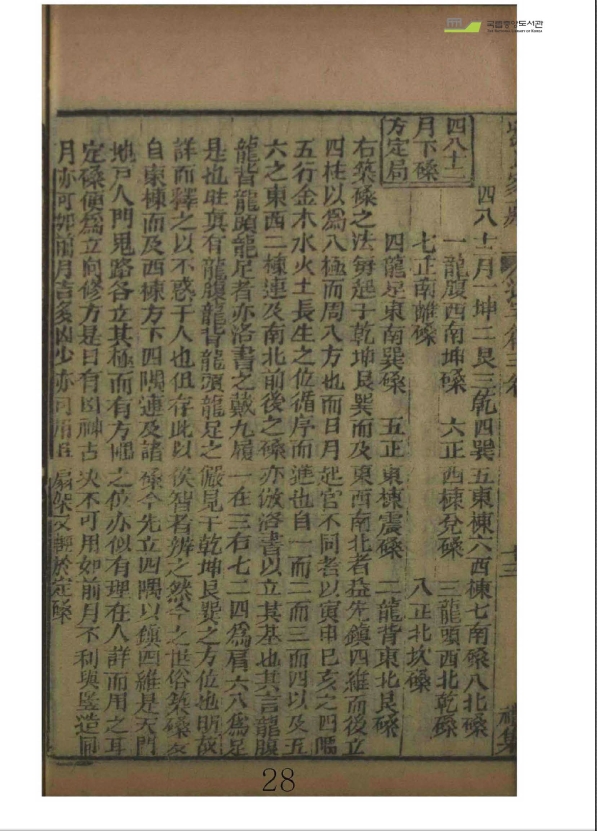 국립중앙도서관
THE NATIONAL LIBRARY OF KOREA
四八十二
月下磉
方定局
四八十二月一坤二艮三乾四巽五東棟六西棟七南磉八北磉
一龍腹西南坤磉 六正西棟兌磉 三龍頭西北乾磉
七正南離磉 八正北坎磉
四龍足東南巽磉 五正東棟震磉 二龍背東北艮磉
右築磉之法每起于乾坤艮巽而及東西南北者益先鎮四維而後立
四柱以為八極而周八方也而日月起宮不同者以寅申巳亥之四隅
五行金木水火土長生之位循序而進也自一而二而三而四以及五
六之東西二棟連及南北前後之磉亦倣洛書以立其基也其言龍腹
龍背龍頭龍足者亦洛書之戴九履一在三右七二四為肩六八為足
是也旺真有龍腹龍背龍頭龍足之儼見于乾坤艮巽之方位也昕故
詳而釋之以不惑于人也但存此以俟智者辨之然今之世俗築磉多
自東棟而及西棟方下四隅連及諸磉今先立四隅以鎮四維是天門
地戶人門鬼路各立其極而有方隅之位亦似有理在人詳而用之耳
定磉便為立向修方是日有凶神占決不可用如前月不利與竪造同
月亦可卸前月吉多凶少亦可用且扇架又輕於定磉
十三
禮集
28